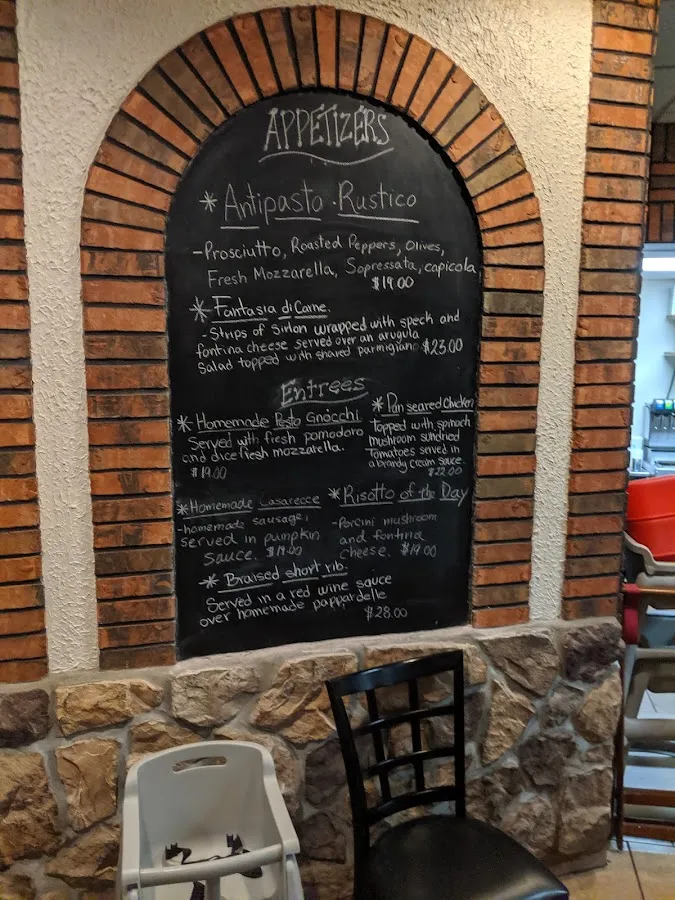 APPETIZERS
* Antipasto Rustico
- Prosciutto, Roasted Peppers, Olives,
Fresh Mozzarella, Sopressata, capicola
$19.00
* Fantasia di Carne.
- Strips of Sirlon wrapped with speck and
fontina cheese served over an arugula
Salad topped with shaved parmigiano $23.00
Entrees
* Homemade Pesto Gnocchi
Served with fresh pomodoro
and dice fresh mozzarella.
$19.00
* Pan seared Chicken
topped with spinach
mushroom sundried
Tomatoes served in
a brandy cream sauce.
$22.00
* Homemade Casarecce
- homemade sausage,
served in pumpkin
sauce. $19.00
* Risotto of the Day
- Porcini mushroom
and fontina
cheese. $19.00
* Braised short rib.
Served in a red wine sauce
over homemade pappardelle
$28.00